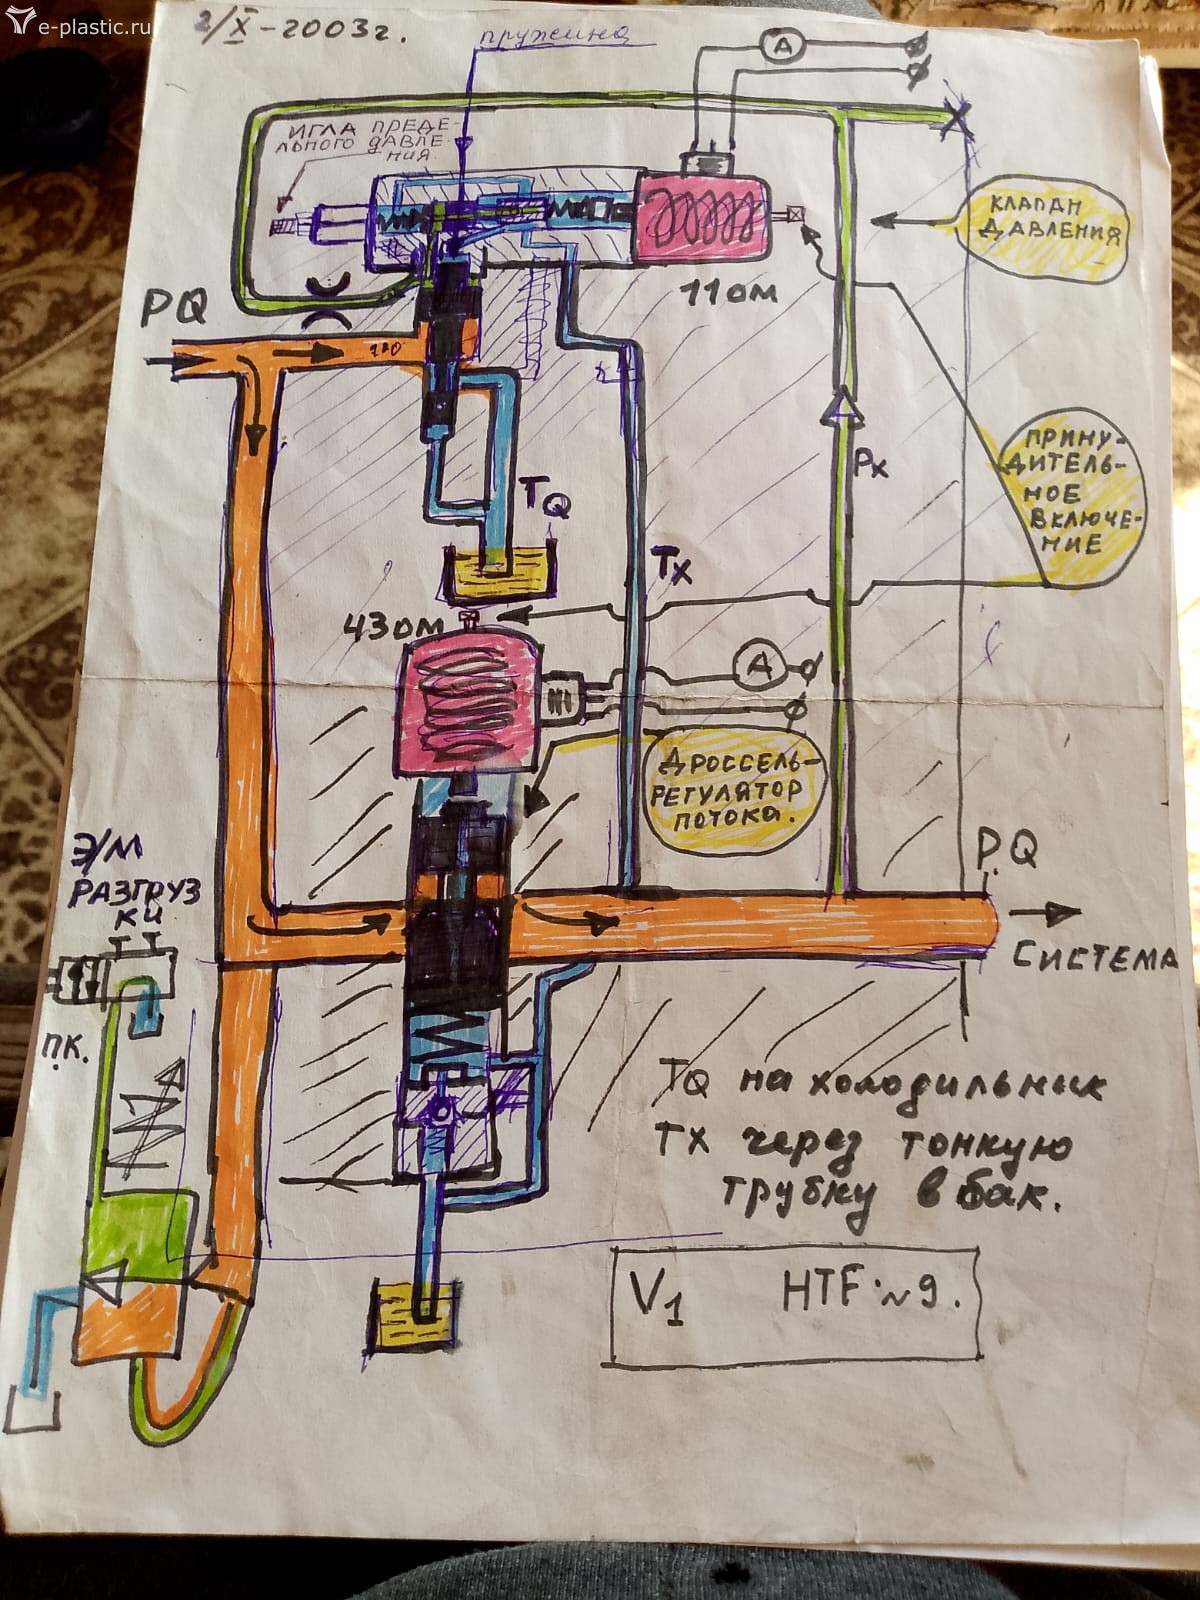 e-plastic.ru
2/X-2003г.
пружина
A
ИГЛА ПРЕДЕ-
ЛЬНОГО ДАВЛЕ-
НИЯ.
КЛАПАН
ДАВЛЕНИЯ
11 ОМ
PQ
ПРИНУ-
ДИТЕЛЬ-
НОЕ
ВКЛЮЧЕ-
НИЕ
Px
TQ
Tx
43 ОМ
A
ДРОССЕЛЬ-
РЕГУЛЯТОР
ПОТОКА.
Э/М
РАЗГРУЗ
КИ
P.Q
СИСТЕМА
ПК.
TQ на холодильник
TX через тонкую
трубку в бак.
V1 HTF·~9.